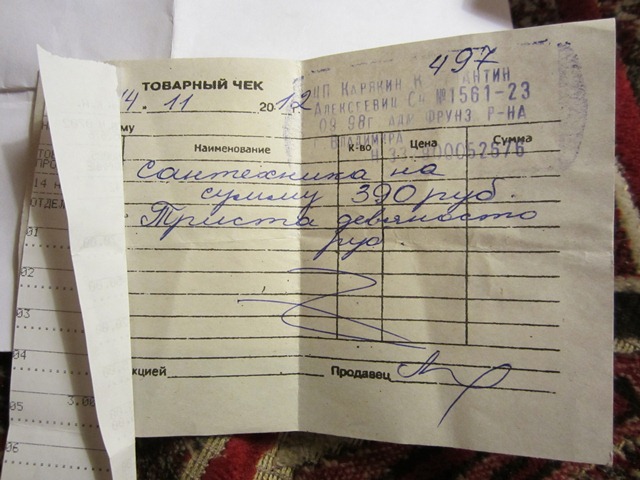 497
ТОВАРНЫЙ ЧЕК
4. 11 2012
ИП КАРЯКИН К АНТИН
АЛЕКСЕЕВИЧ СВ №1561-23
09 98г АДМ ФРУНЗ Р-НА
Г ВЛАДИМИРА
му
Наименование К-во Цена Сумма
Сантехника на
сумму 390 руб.
Триста девяносто
руб.
кцией Продавец
14
ОТДЕЛ
01
02
03
04
05 3.00
06